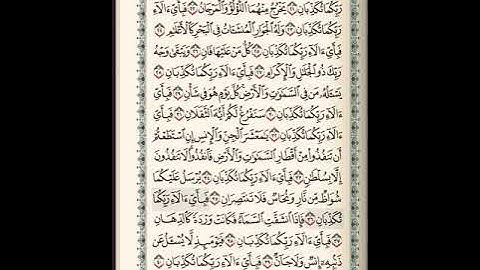 رَبِّكُمَا تُكَذِّبَانِ ۝ يَخْرُجُ مِنْهُمَا ٱللُّؤْلُؤُ وَٱلْمَرْجَانُ ۝ فَبِأَىِّ ءَالَآءِ
رَبِّكُمَا تُكَذِّبَانِ ۝ وَلَهُ ٱلْجَوَارِ ٱلْمُنشَـَٔاتُ فِى ٱلْبَحْرِ كَٱلْأَعْلَـٰمِ ۝
فَبِأَىِّ ءَالَآءِ رَبِّكُمَا تُكَذِّبَانِ ۝ كُلُّ مَنْ عَلَيْهَا فَانٍ ۝ وَيَبْقَىٰ وَجْهُ
رَبِّكَ ذُو ٱلْجَلَـٰلِ وَٱلْإِكْرَامِ ۝ فَبِأَىِّ ءَالَآءِ رَبِّكُمَا تُكَذِّبَانِ ۝
يَسْـَٔلُهُۥ مَن فِى ٱلسَّمَـٰوَٰتِ وَٱلْأَرْضِ ۚ كُلَّ يَوْمٍ هُوَ فِى شَأْنٍ ۝ فَبِأَىِّ
ءَالَآءِ رَبِّكُمَا تُكَذِّبَانِ ۝ سَنَفْرُغُ لَكُمْ أَيُّهَ ٱلثَّقَلَانِ ۝ فَبِأَىِّ
ءَالَآءِ رَبِّكُمَا تُكَذِّبَانِ ۝ يَـٰمَعْشَرَ ٱلْجِنِّ وَٱلْإِنسِ إِنِ ٱسْتَطَعْتُمْ
أَن تَنفُذُوا۟ مِنْ أَقْطَارِ ٱلسَّمَـٰوَٰتِ وَٱلْأَرْضِ فَٱنفُذُوا۟ ۚ لَا تَنفُذُونَ
إِلَّا بِسُلْطَـٰنٍ ۝ فَبِأَىِّ ءَالَآءِ رَبِّكُمَا تُكَذِّبَانِ ۝ يُرْسَلُ عَلَيْكُمَا
شُوَاظٌ مِّن نَّارٍ وَنُحَاسٌ فَلَا تَنتَصِرَانِ ۝ فَبِأَىِّ ءَالَآءِ رَبِّكُمَا
تُكَذِّبَانِ ۝ فَإِذَا ٱنشَقَّتِ ٱلسَّمَآءُ فَكَانَتْ وَرْدَةً كَٱلدِّهَانِ
۝ فَبِأَىِّ ءَالَآءِ رَبِّكُمَا تُكَذِّبَانِ ۝ فَيَوْمَئِذٍ لَّا يُسْـَٔلُ عَن
ذَنۢبِهِۦٓ إِنسٌ وَلَا جَآنٌّ ۝ فَبِأَىِّ ءَالَآءِ رَبِّكُمَا تُكَذِّبَانِ ۝